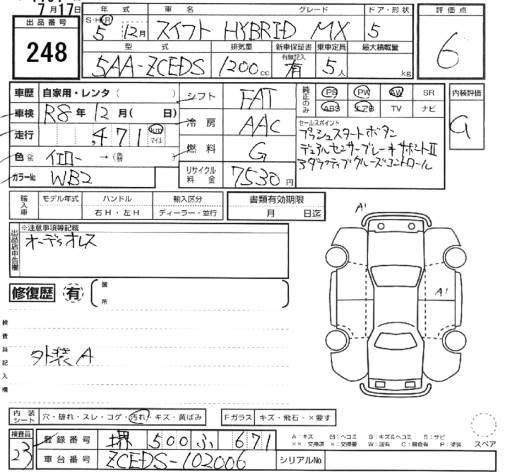 7月17日
出品番号
248
年式 車名 グレード ドア・形状
S・H・R 5年 12月 スイフト HYBRID MX 5
型式 排気量 新車保証書 乗車定員 最大積載量
有無記入
5AA-ZCEDS 1200cc 有 5人 kg
評価点
6
車歴 自家用・レンタ( )
車検 R8年12月( 日)
走行 ,471 km マイル
色 イエロー → (
カラーNo. WB2
シフト FAT
冷房 AAC
燃料 G
リサイクル料金 7530円
純正のみ
PS PW AW SR
ABS エアB TV ナビ
セールスポイント
プッシュスタートボタン
デュアルセンサーブレーキサポートⅡ
アダプティブクルーズコントロール
内装評価
輸入車
モデル年式 ハンドル 輸入区分
右H・左H ディーラー・並行
書類有効期限
月 日迄
出品店申告欄
※注意事項等記載
オーディオレス
修復歴 有
箇所
検査員記入欄
外装A
A1
A1
内装シート 穴・破れ・スレ・コゲ・汚れ・キズ・黄ばみ
Fガラス キズ・飛石・×要す
検査員
23
登録番号 堺 500 ふ 671
車台番号 ZCEDS-102006
シリアルNo.
A:キズ U:ヘコミ B:キズ&ヘコミ S:サビ
スペア